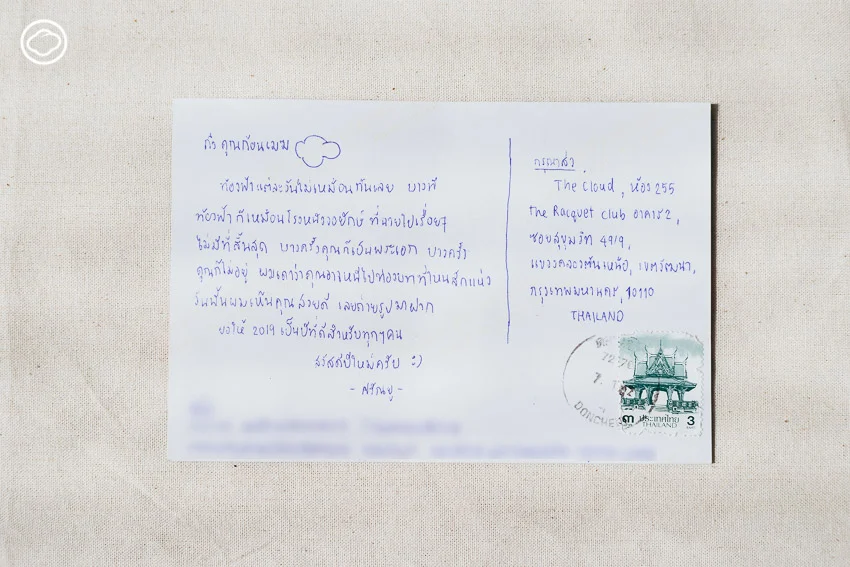 ถึง คุณก้อนเมฆ
ท้องฟ้าแต่ละวันไม่เหมือนกันเลย บางที
ท้องฟ้าก็เหมือนโรงหนังจอยักษ์ ที่ฉายไปเรื่อยๆ
ไม่มีที่สิ้นสุด บางครั้งคุณก็เป็นพระเอก บางครั้ง
คุณก็ไม่อยู่ ผมเดาว่าคุณอาจหนีไปท่องบทที่ไหนสักแห่ง
วันนั้นผมเห็นคุณสวยดี เลยถ่ายรูปมาฝาก
ขอให้ 2019 เป็นปีที่ดีสำหรับทุกๆคน
สวัสดีปีใหม่ครับ :)
- ศรัณยู -
กรุณาส่ง
The Cloud, ห้อง 255
The Racquet Club อาคาร 2,
ซอยสุขุมวิท 49/9,
แขวงคลองตันเหนือ, เขตวัฒนา,
กรุงเทพมหานคร, 10110
THAILAND
๓ ประเทศไทย 3
THAILAND